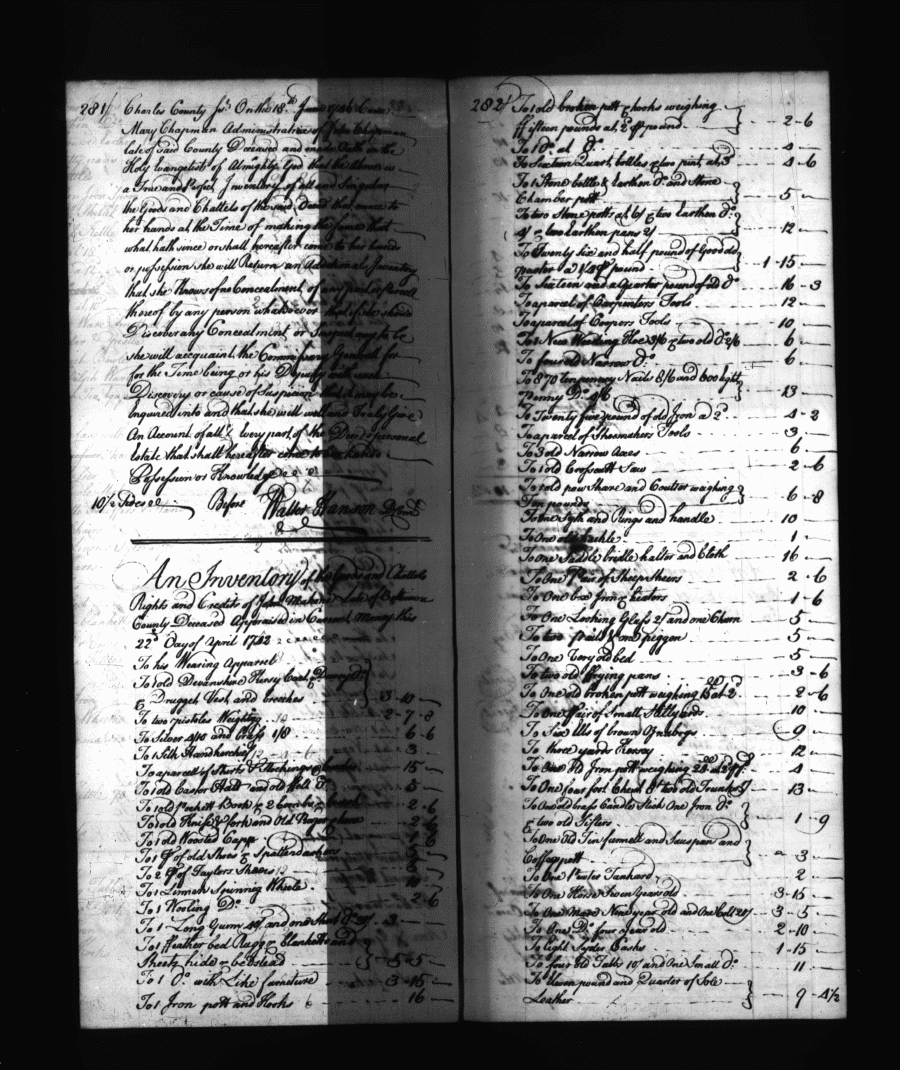 281/ Charles County Sst. On the 18th June 1746 Came
Mary Chapman Administratrix of John Chapman
late of said County Deceased and made Oath on the
Holy Evangelists of Almighty God that the Above is
a True and Perfect Inventory of all and Singular
the Goods and Chattels of the said Deced that came to
her hands at the Time of making the same that
what hath since or shall hereafter come to her hands
or possession she will Return an Additional Inventory
that she Knows of no Concealment of any part or parcell
thereof by any person whatsoever that if she shall
Discover any Concealment or Suspect any to be
she will acquaint the Commissary Generall for
for the Time being or his Deputy with such
Discovery or cause of Suspicion that it may be
Enquired into and that she will well and Truly Give
An Account of all & Every part of the Deceds personal
Estate that shall hereafter come to her hands
Possession or Knowledge
10½ Sides Before Walter Hanson
An Inventory of the Goods and Chattels
Rights and Credits of John late of Baltimore
County Deceased Appraised in Current Money this
22d Day of April 1742
To his Wearing Apparrel
To 1 old Devonshire Kersy Coat
& Drugget Vest and breeches 3 - 10 -
To two pistoles Weighty 2 - 7 - 8
To Silver 4/10 and brass 1/8 6 - 6
To 1 Silk Handkerchief 3
To a parcell of Shirts & Stockings 15 -
To 1 old Castor Hatt and old felt Do 5 -
To 1 old Pockett Book & 2 2 - 6
To old Knife & fork and Old Razor 2 - 6
To 1 old Woosted Capp
To 1 pr of old Shoes & Spatterdashers
To 2 pr of Taylors Shears
To 1 Linnen Spinning Wheele
To 1 Wooling Do 2 - 6
To 1 Long Gunn 40/ and one Short Do 3 -
To 1 ffeather bed Rugg & blanketts and
Sheets hide & bedstead 5 - 5 -
To 1 Do with Like furniture 3 - 15 -
To 1 Iron pott and Hooks 16 -
282/ To 1 old broken pott & hooks weighing
ffifteen pounds at 2 pr pound 2 - 6
To 1 Do at Do 4 -
To Sixteen Quart bottles & two pint at 3 4 - 6
To 1 Stone bottle & Earthen Do and Stone
Chamber pott 5 -
To two Stone potts at 6/ & two Earthen Do
4/ & two Earthen pans 2/ 12 -
To Twenty Six and half pound of Good old
pewter a 1/4 pr pound 1 - 15 -
To Sixteen and a Quarter pound of Do 16 - 3
To a parcel of Carpenters Tools 12 -
To a parcel of Coopers Tools 10 -
To 1 New Weeding Hoe 3/6 & two old Do 2/6 6 -
To four old Narrow Do 6 -
To 870 ten penny Nails 8/6 and 600 Eight
Penny Do 4/6 13 -
To Twenty five pound of old Iron a 2d 4 - 2
To a parcel of Shoemakers Tools 3 -
To 3 old Narrow Axes 6 -
To 1 old Crosscutt Saw 2 - 6
To 1 old plow Share and Coulter weighing
Ten pounds 6 - 8
To one Syth and Rings and handle 10 -
To One old hackle 1 -
To One Saddle bridle halter and Cloth 16 -
To One Pair of Sheep Sheers 2 - 6
To One box Iron & heaters 1 - 6
To One Looking Glass 2/ and one Churn 5 -
To two pails & one piggon 5 -
To One Very old bed 5 -
To two old ffrying pans 3 - 6
To One old broken pott weighing 15 at 2 2 - 6
To One Pair of Small Stillyards 10 -
To Six Ells of brown Oznabrgs 9 -
To three yards Kersey 12 -
To One Old Iron pott weighing 24 at 2 4 -
To One four foot Chest 8/ two old Trunks 5/ 13 -
To One old brass Candle Stick One Iron Do
& two old Sifters 1 - 9
To One Old Tin funnell and Saucepan and
Coffeepott 3 -
To One Pewter Tankard 2 -
To One Horse Seven Years old 3 - 15 -
To One Mare Nine year old and One Colt 20/ 3 - 5 -
To One Do four year old 2 - 10 -
To Eight Syder Casks 1 - 15 -
To four old Tubbs 10/ and One Small Do 11 -
To Eleven pound and Quarter of Sole
Leather 9 - 4½